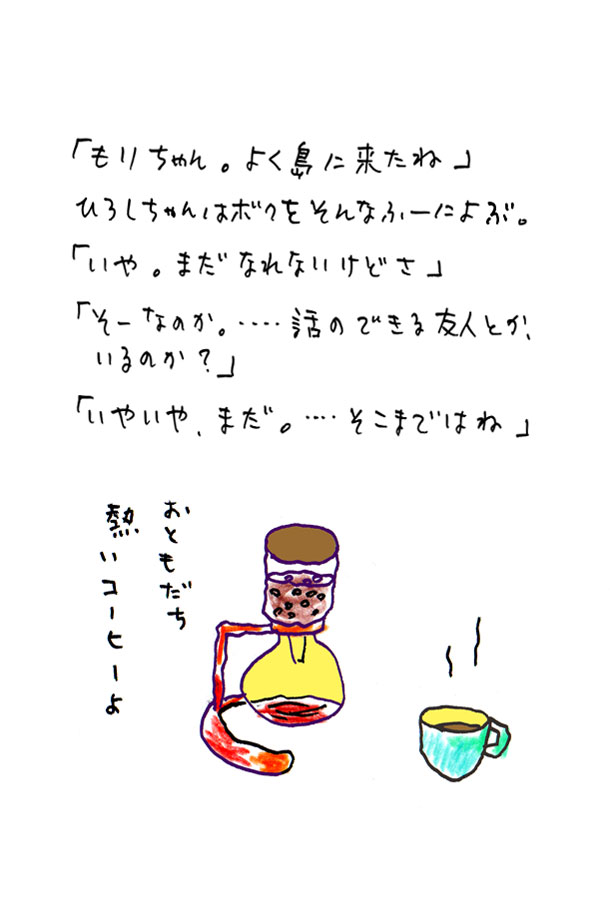 「もりちゃん。よく島に来たね」
ひろしちゃんはボクをそんなふーによぶ。
「いや。まだなれないけどさ」
「そーなのか。‥‥話のできる友人とか、
いるのか？」
「いやいや、まだ。‥‥そこまではね」
おともだち
熱いコーヒーよ